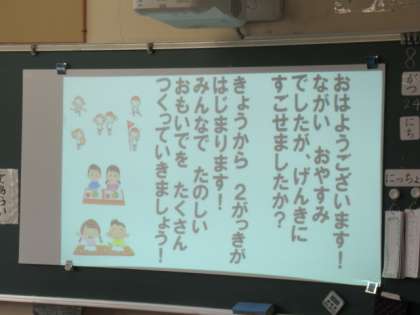 おはようございます！
ながい　おやすみ
でしたが、げんきに
すごせましたか？
きょうから　２がっきが
はじまります！
みんなで　たのしい
おもいでを　たくさん
つくっていきましょう！
にっちょ